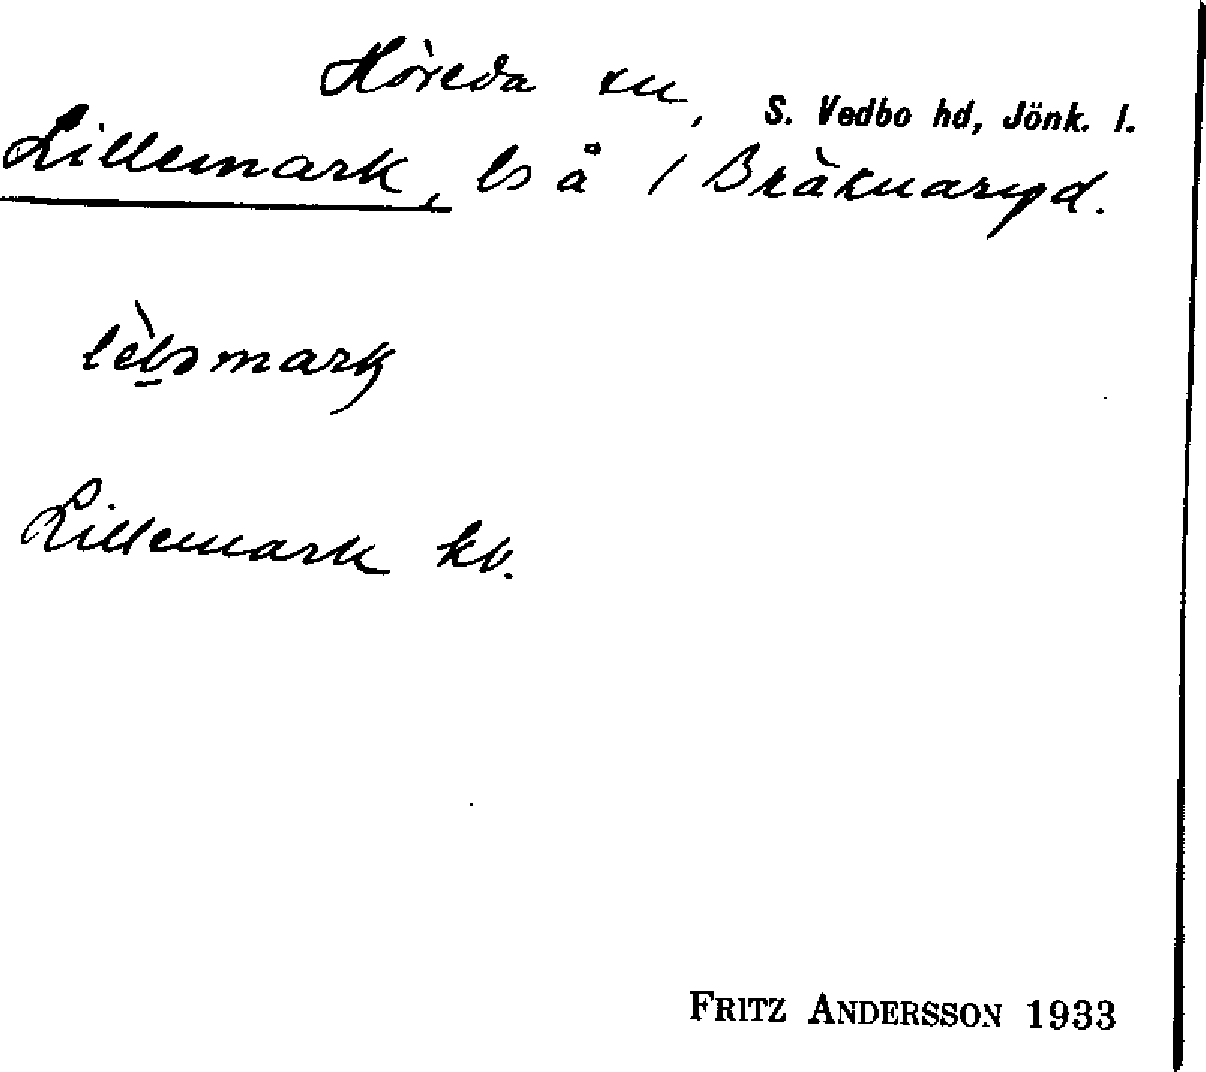 Höreda sn, S. Vedbo hd, Jönk. l.
Lillemark, ls å 1 Bräknaryd.
Lillemark kv.
FRITZ ANDERSSON 1933